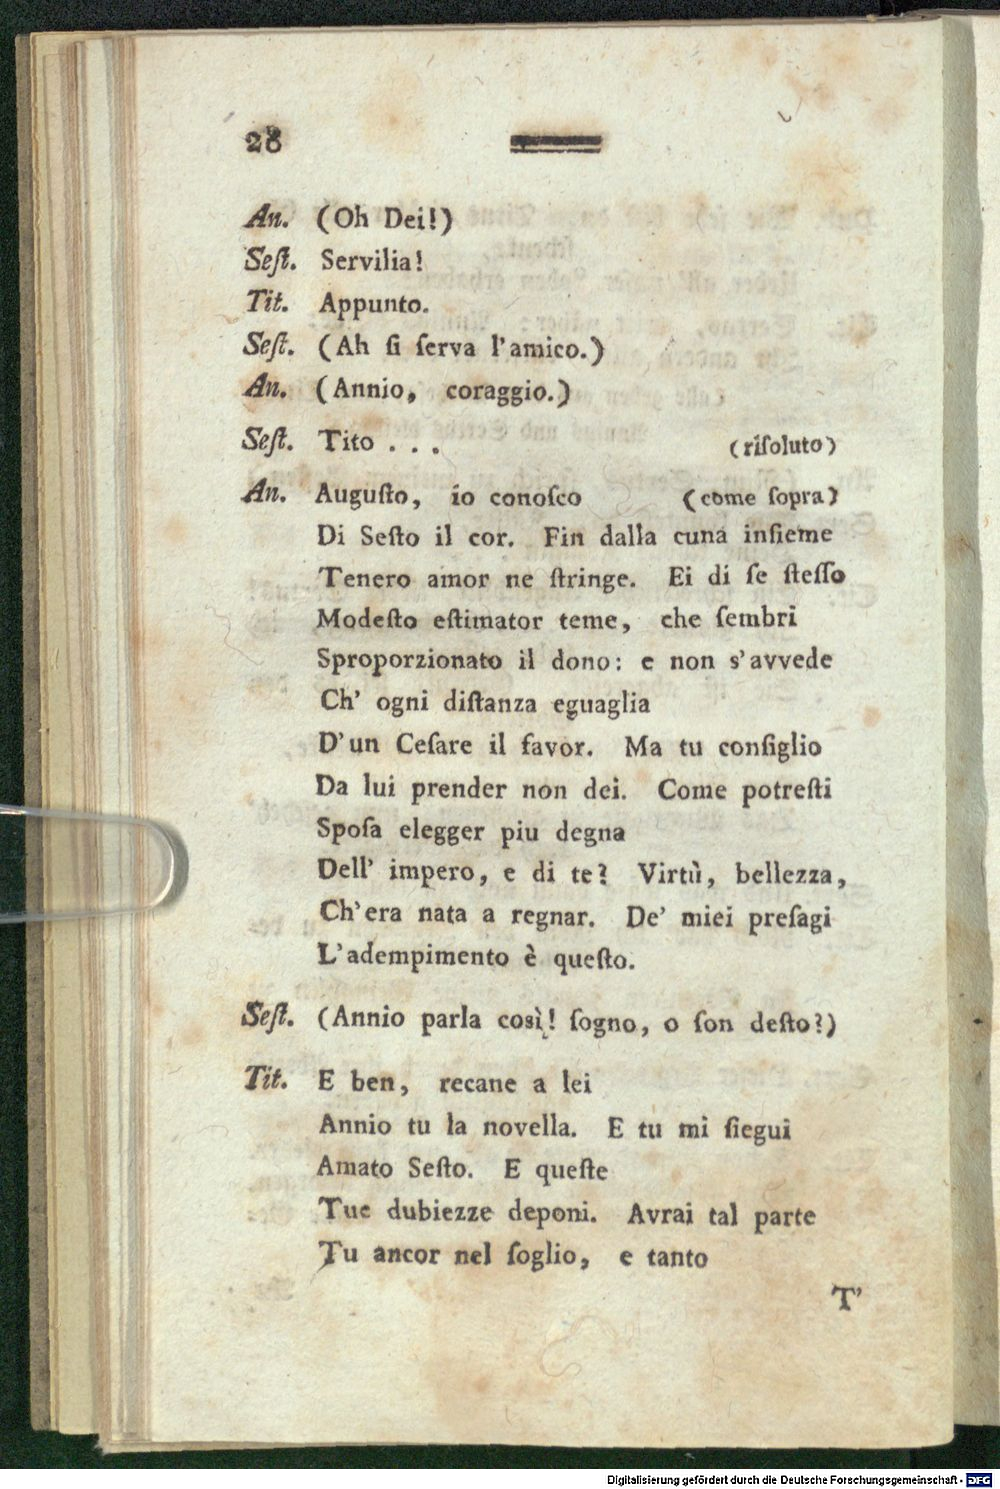 28
An. (Oh Dei!)
Seſt. Servilia!
Tit. Appunto.
Seſt. (Ah ſi ſerva l'amico.)
An. (Annio, coraggio.)
Seſt. Tito . . . (riſoluto)
An. Auguſto, io conoſco (come ſopra)
Di Seſto il cor. Fin dalla cuna inſieme
Tenero amor ne ſtringe. Ei di ſe ſteſſo
Modeſto eſtimator teme, che ſembri
Sproporzionato il dono: e non s'avvede
Ch' ogni diſtanza eguaglia
D'un Ceſare il favor. Ma tu conſiglio
Da lui prender non dei. Come potreſti
Spoſa elegger piu degna
Dell' impero, e di te? Virtù, bellezza,
Ch'era nata a regnar. De' miei preſagi
L'adempimento è queſto.
Seſt. (Annio parla così! ſogno, o ſon deſto?)
Tit. E ben, recane a lei
Annio tu la novella. E tu mi ſiegui
Amato Seſto. E queſte
Tue dubiezze deponi. Avrai tal parte
Tu ancor nel ſoglio, e tanto
T'
Digitalisierung gefördert durch die Deutsche Forschungsgemeinschaft - DFG